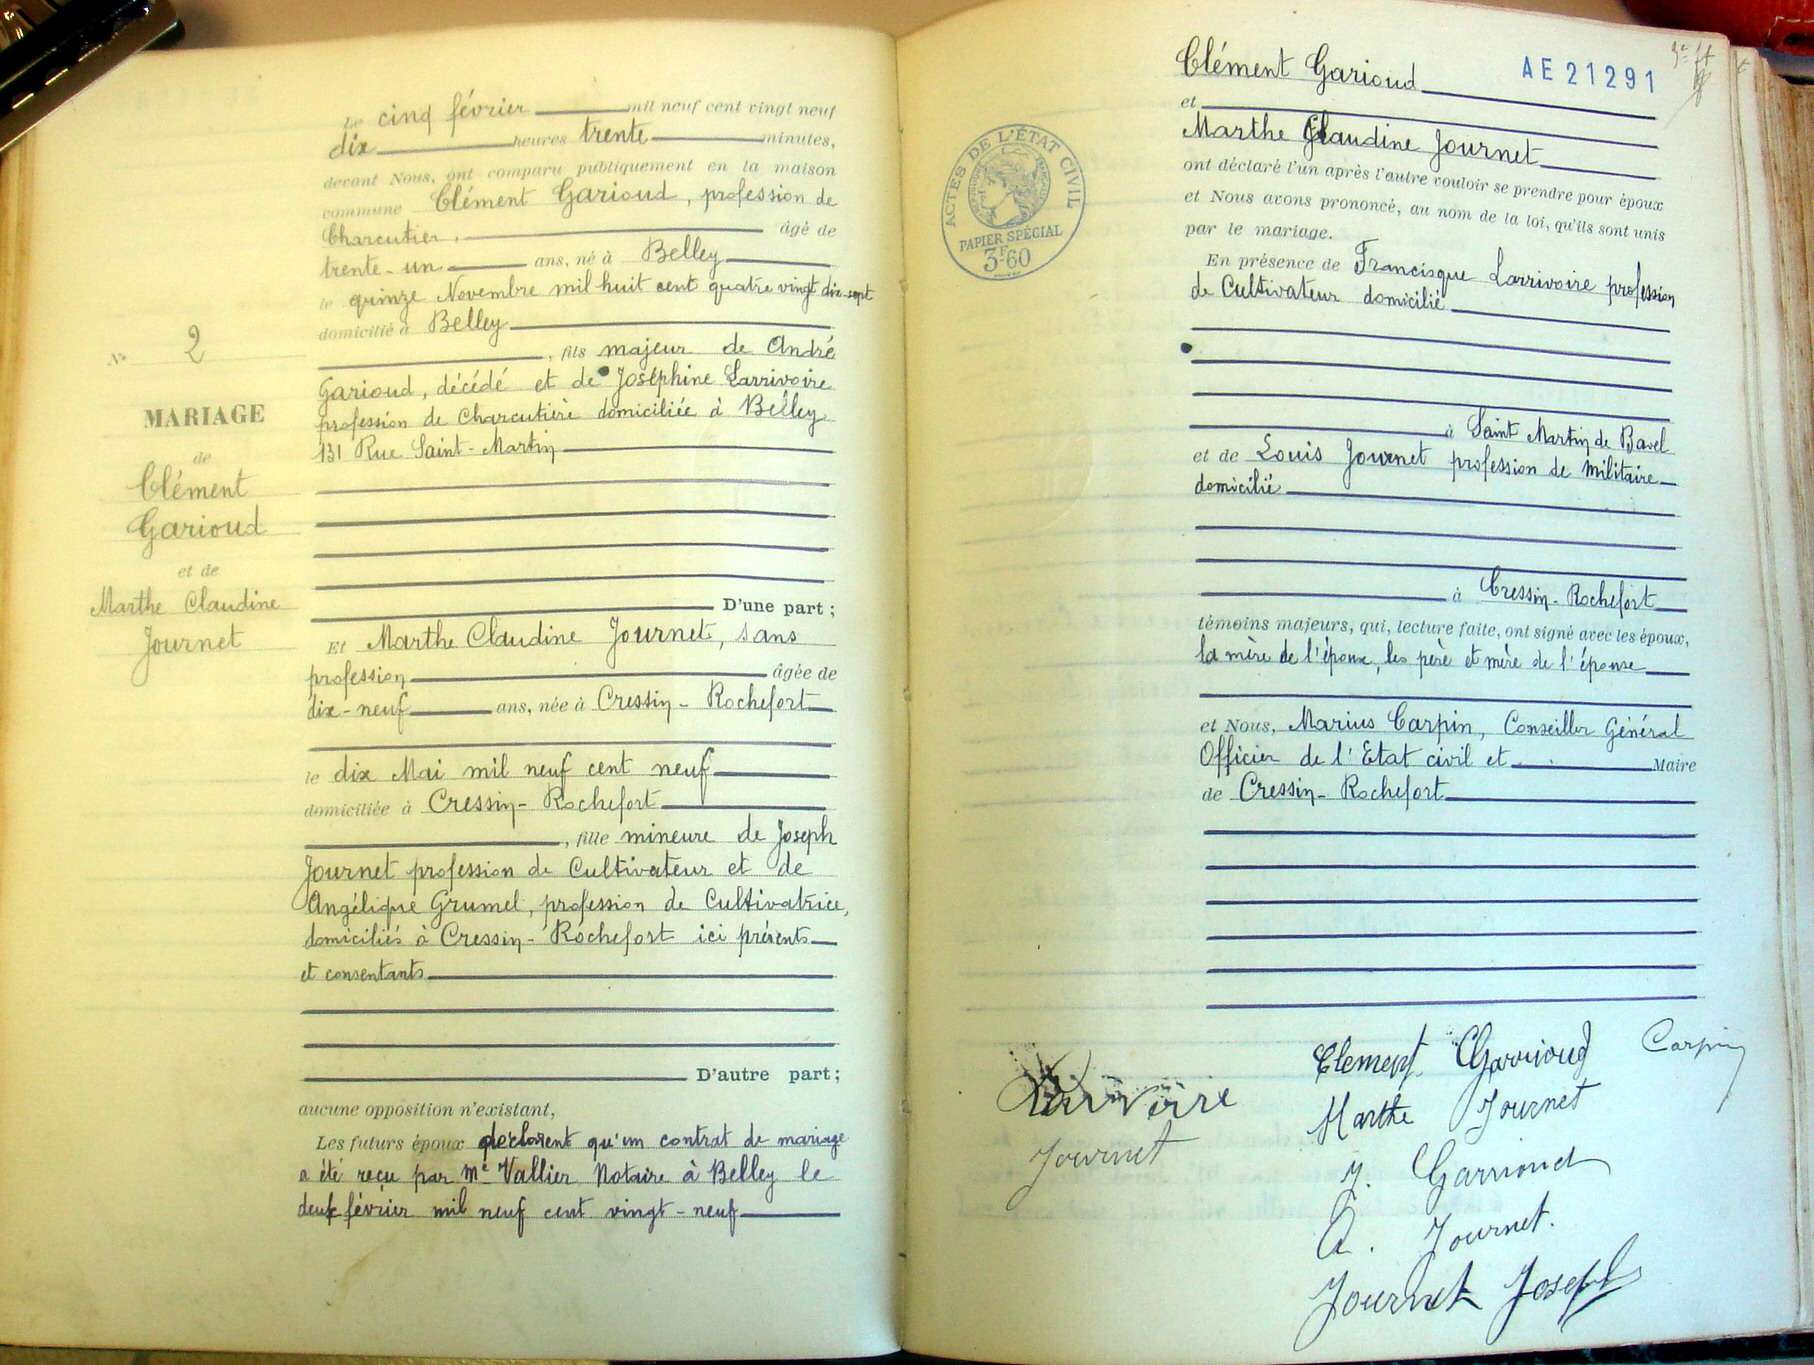 Le cinq février mil neuf cent vingt neuf
dix heures trente minutes,
devant Nous, ont comparu publiquement en la maison
commune Clément Garioud, profession de
Charcutier, âgé de
trente-un ans, né à Belley
le quinze Novembre mil huit cent quatre vingt dix-sept
domicilié à Belley
, fils majeur de André
Garioud, décédé et de Joséphine Larrivoire
profession de Charcutière domiciliée à Belley
131 Rue Saint-Martin
D'une part;
Et Marthe Claudine Journet, sans
profession âgée de
dix-neuf ans, née à Cressin-Rochefort
le dix Mai mil neuf cent neuf
domiciliée à Cressin-Rochefort
, fille mineure de Joseph
Journet profession de Cultivateur et de
Angélique Grumel, profession de Cultivatrice,
domiciliés à Cressin-Rochefort ici présents
et consentants
D'autre part;
aucune opposition n'existant,
Les futurs époux déclarent qu'un contrat de mariage
a été reçu par Me Vallier Notaire à Belley le
deux février mil neuf cent vingt-neuf
No 2
MARIAGE
de
Clément
Garioud
et de
Marthe Claudine
Journet
Clément Garioud
AE 21291
et
Marthe Claudine Journet
ont déclaré l'un après l'autre vouloir se prendre pour époux
et Nous avons prononcé, au nom de la loi, qu'ils sont unis
par le mariage.
En présence de Francisque Larrivoire profession
de Cultivateur domicilié
à Saint Martin de Bavel
et de Louis Journet profession de militaire
domicilié
à Cressin-Rochefort
témoins majeurs, qui, lecture faite, ont signé avec les époux,
la mère de l'époux, les père et mère de l'épouse
et Nous, Marius Carpin, Conseiller Général
Officier de l'Etat civil et Maire
de Cressin-Rochefort
ACTES DE L'ÉTAT CIVIL
PAPIER SPÉCIAL
3F60
Clement Garrioud
Carpin
Larrivoire
Marthe Journet
Journet
J. Garrioud
A. Journet.
Journet Joseph